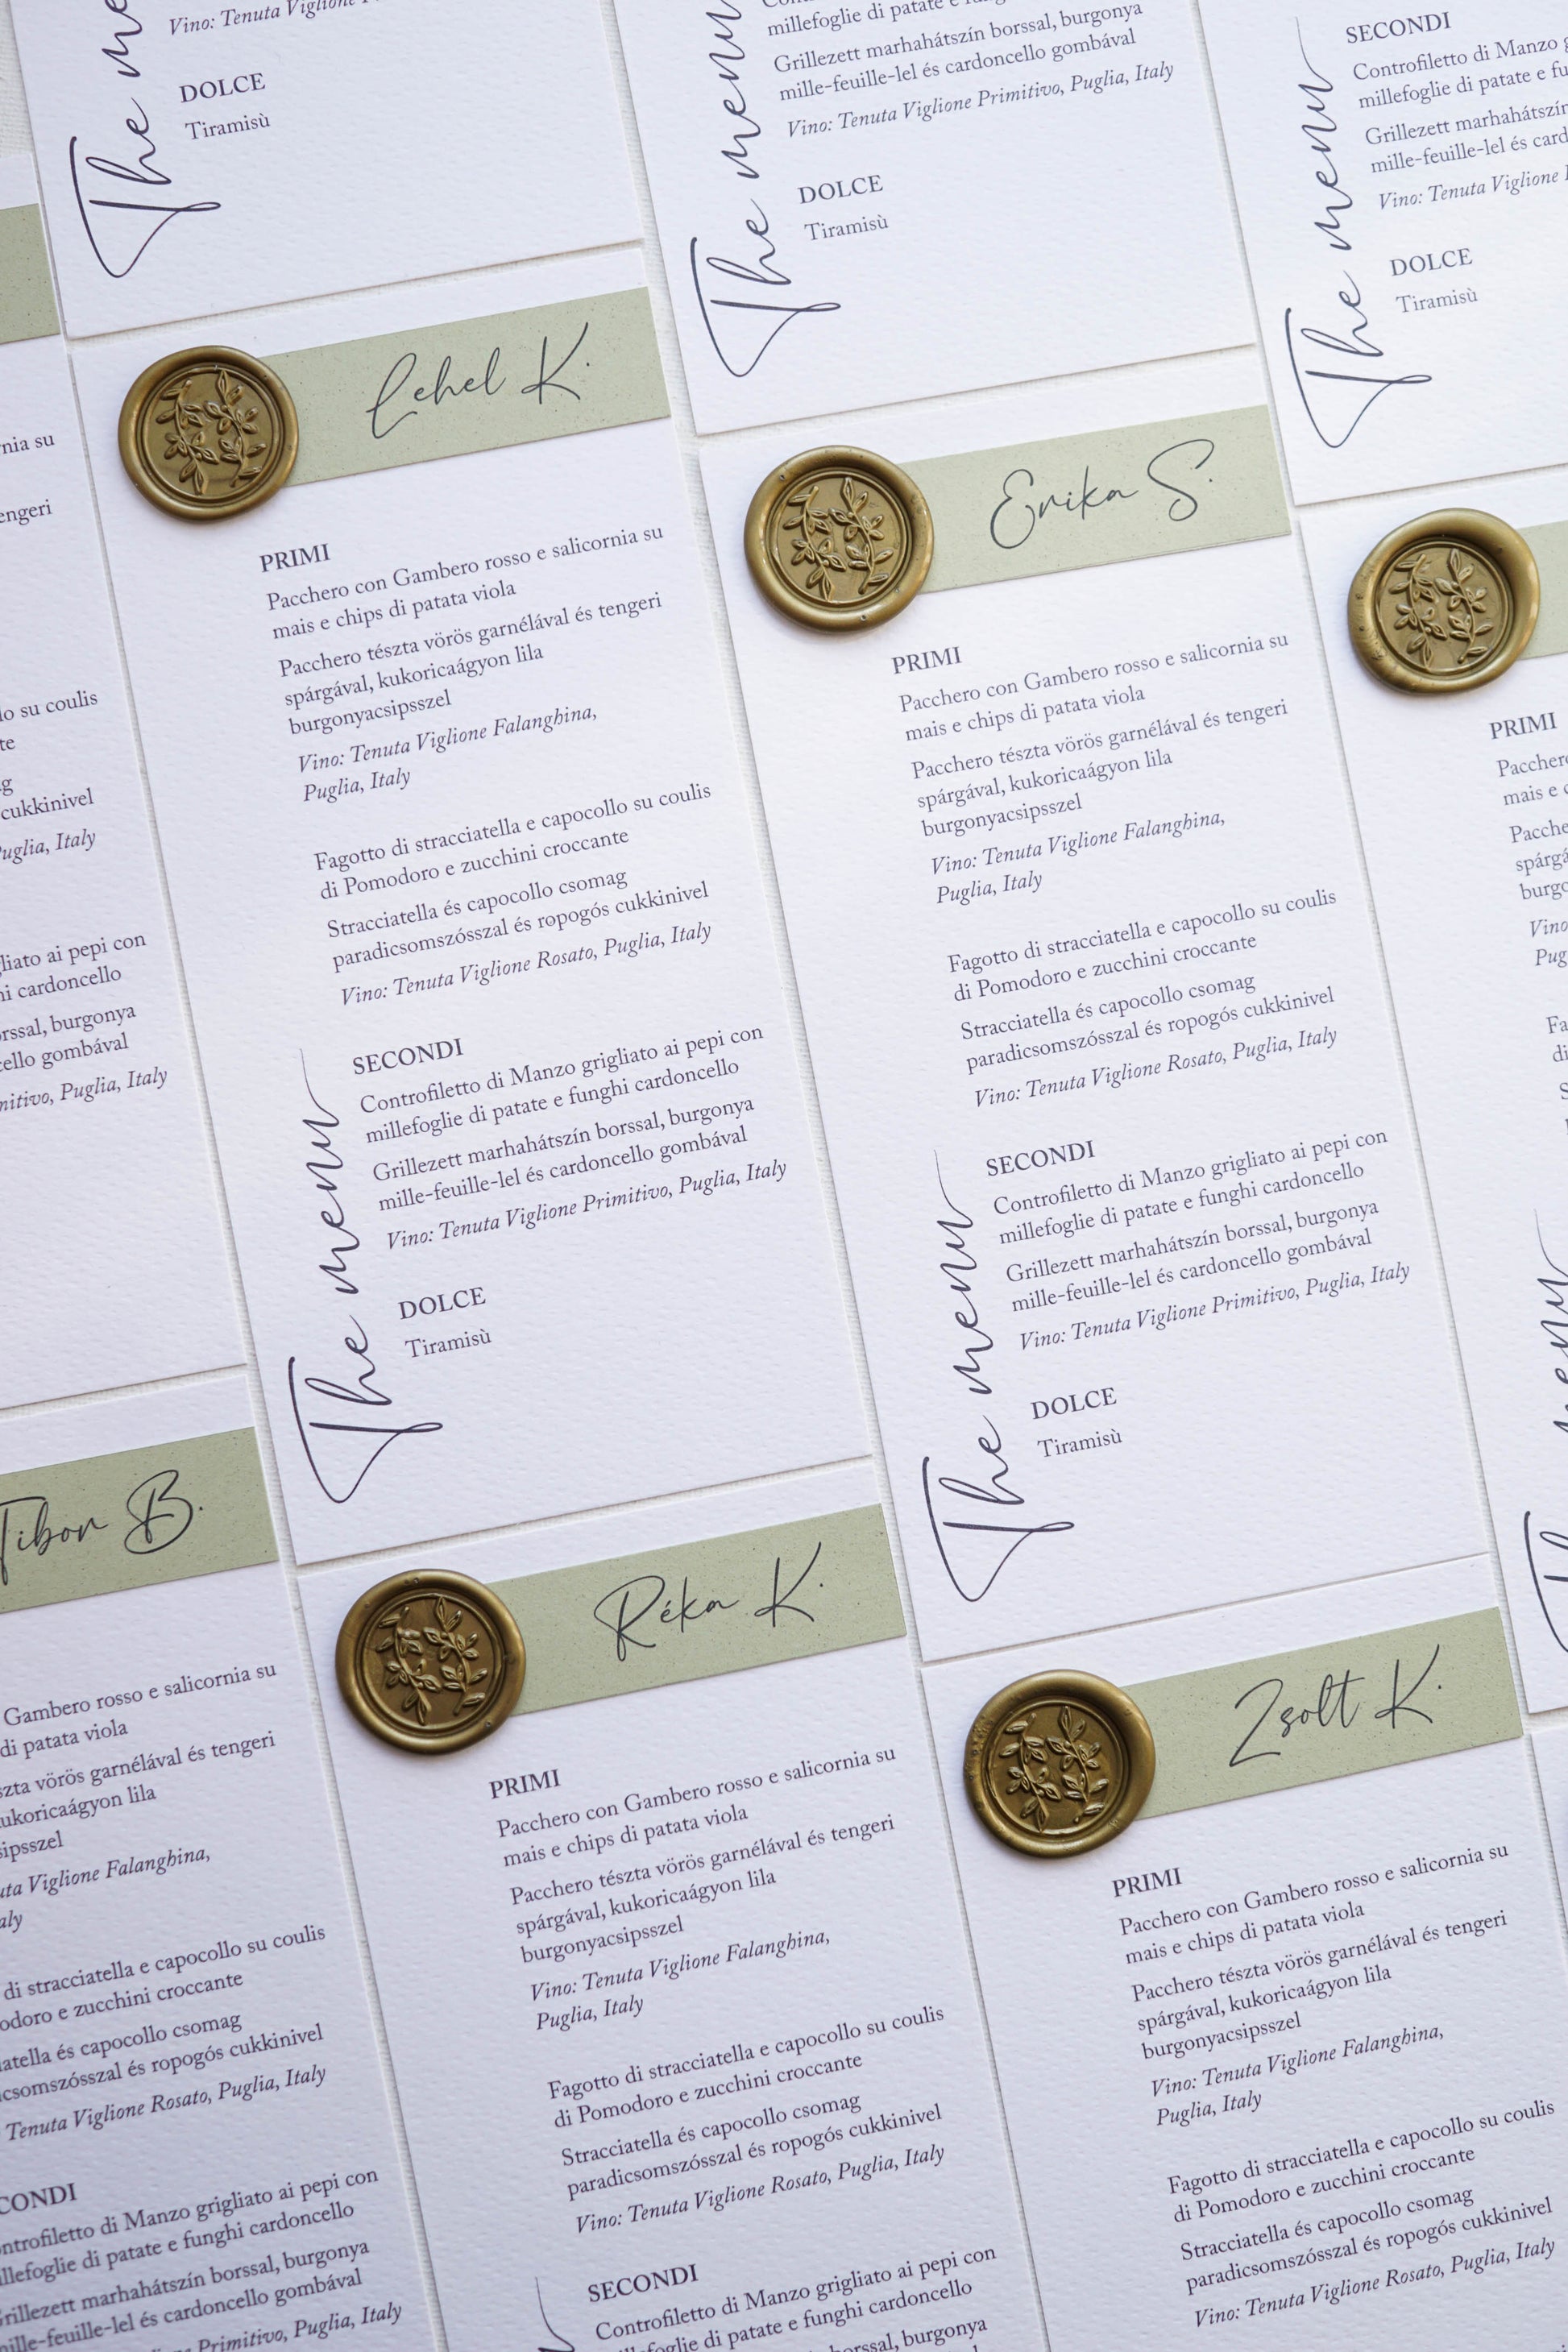 Vino: Tenuta Viglione
DOLCE
Tiramisù
The me
millefoglie di patate e
Grillezett marhahátszín borssal, burgonya
mille-feuille-lel és cardoncello gombával
Vino: Tenuta Viglione Primitivo, Puglia, Italy
DOLCE
Tiramisù
The menu
SECONDI
Controfiletto di Manzo
millefoglie di patate e fu
Grillezett marhahátszín
mille-feuille-lel és card
Vino: Tenuta Viglione
DOLCE
Tiramisù
The menu
rnia su
engeri
lo su coulis
te
g
cukkinivel
Puglia, Italy
gliato ai pepi con
ni cardoncello
orssal, burgonya
cello gombával
mitivo, Puglia, Italy
Lehel K.
PRIMI
Pacchero con Gambero rosso e salicornia su
mais e chips di patata viola
Pacchero tészta vörös garnélával és tengeri
spárgával, kukoricaágyon lila
burgonyacsipsszel
Vino: Tenuta Viglione Falanghina,
Puglia, Italy
Fagotto di stracciatella e capocollo su coulis
di Pomodoro e zucchini croccante
Stracciatella és capocollo csomag
paradicsomszósszal és ropogós cukkinivel
Vino: Tenuta Viglione Rosato, Puglia, Italy
SECONDI
Controfiletto di Manzo grigliato ai pepi con
millefoglie di patate e funghi cardoncello
Grillezett marhahátszín borssal, burgonya
mille-feuille-lel és cardoncello gombával
Vino: Tenuta Viglione Primitivo, Puglia, Italy
DOLCE
Tiramisù
The menu
Erika S.
PRIMI
Pacchero con Gambero rosso e salicornia su
mais e chips di patata viola
Pacchero tészta vörös garnélával és tengeri
spárgával, kukoricaágyon lila
burgonyacsipsszel
Vino: Tenuta Viglione Falanghina,
Puglia, Italy
Fagotto di stracciatella e capocollo su coulis
di Pomodoro e zucchini croccante
Stracciatella és capocollo csomag
paradicsomszósszal és ropogós cukkinivel
Vino: Tenuta Viglione Rosato, Puglia, Italy
SECONDI
Controfiletto di Manzo grigliato ai pepi con
millefoglie di patate e funghi cardoncello
Grillezett marhahátszín borssal, burgonya
mille-feuille-lel és cardoncello gombával
Vino: Tenuta Viglione Primitivo, Puglia, Italy
DOLCE
Tiramisù
The menu
PRIMI
Pacchero
mais e c
Pacche
spárgá
burgo
Vino
Pug
Fa
di
Tibor B.
Gambero rosso e salicornia su
di patata viola
szta vörös garnélával és tengeri
ukoricaágyon lila
sipsszel
uta Viglione Falanghina,
aly
di stracciatella e capocollo su coulis
odoro e zucchini croccante
iatella és capocollo csomag
icsomszósszal és ropogós cukkinivel
Tenuta Viglione Rosato, Puglia, Italy
CONDI
ontrofiletto di Manzo grigliato ai pepi con
illefoglie di patate e funghi cardoncello
Grillezett marhahátszín borssal, burgonya
mille-feuille-lel és cardoncello gombával
Primitivo, Puglia, Italy
Réka K.
PRIMI
Pacchero con Gambero rosso e salicornia su
mais e chips di patata viola
Pacchero tészta vörös garnélával és tengeri
spárgával, kukoricaágyon lila
burgonyacsipsszel
Vino: Tenuta Viglione Falanghina,
Puglia, Italy
Fagotto di stracciatella e capocollo su coulis
di Pomodoro e zucchini croccante
Stracciatella és capocollo csomag
paradicsomszósszal és ropogós cukkinivel
Vino: Tenuta Viglione Rosato, Puglia, Italy
SECONDI
Controfiletto di Manzo grigliato ai pepi con
millefoglie di patate e funghi cardoncello
borssal, burgonya
Zsolt K.
PRIMI
Pacchero con Gambero rosso e salicornia su
mais e chips di patata viola
Pacchero tészta vörös garnélával és tengeri
spárgával, kukoricaágyon lila
burgonyacsipsszel
Vino: Tenuta Viglione Falanghina,
Puglia, Italy
Fagotto di stracciatella e capocollo su coulis
di Pomodoro e zucchini croccante
Stracciatella és capocollo csomag
paradicsomszósszal és ropogós cukkinivel
Vino: Tenuta Viglione Rosato, Puglia, Italy